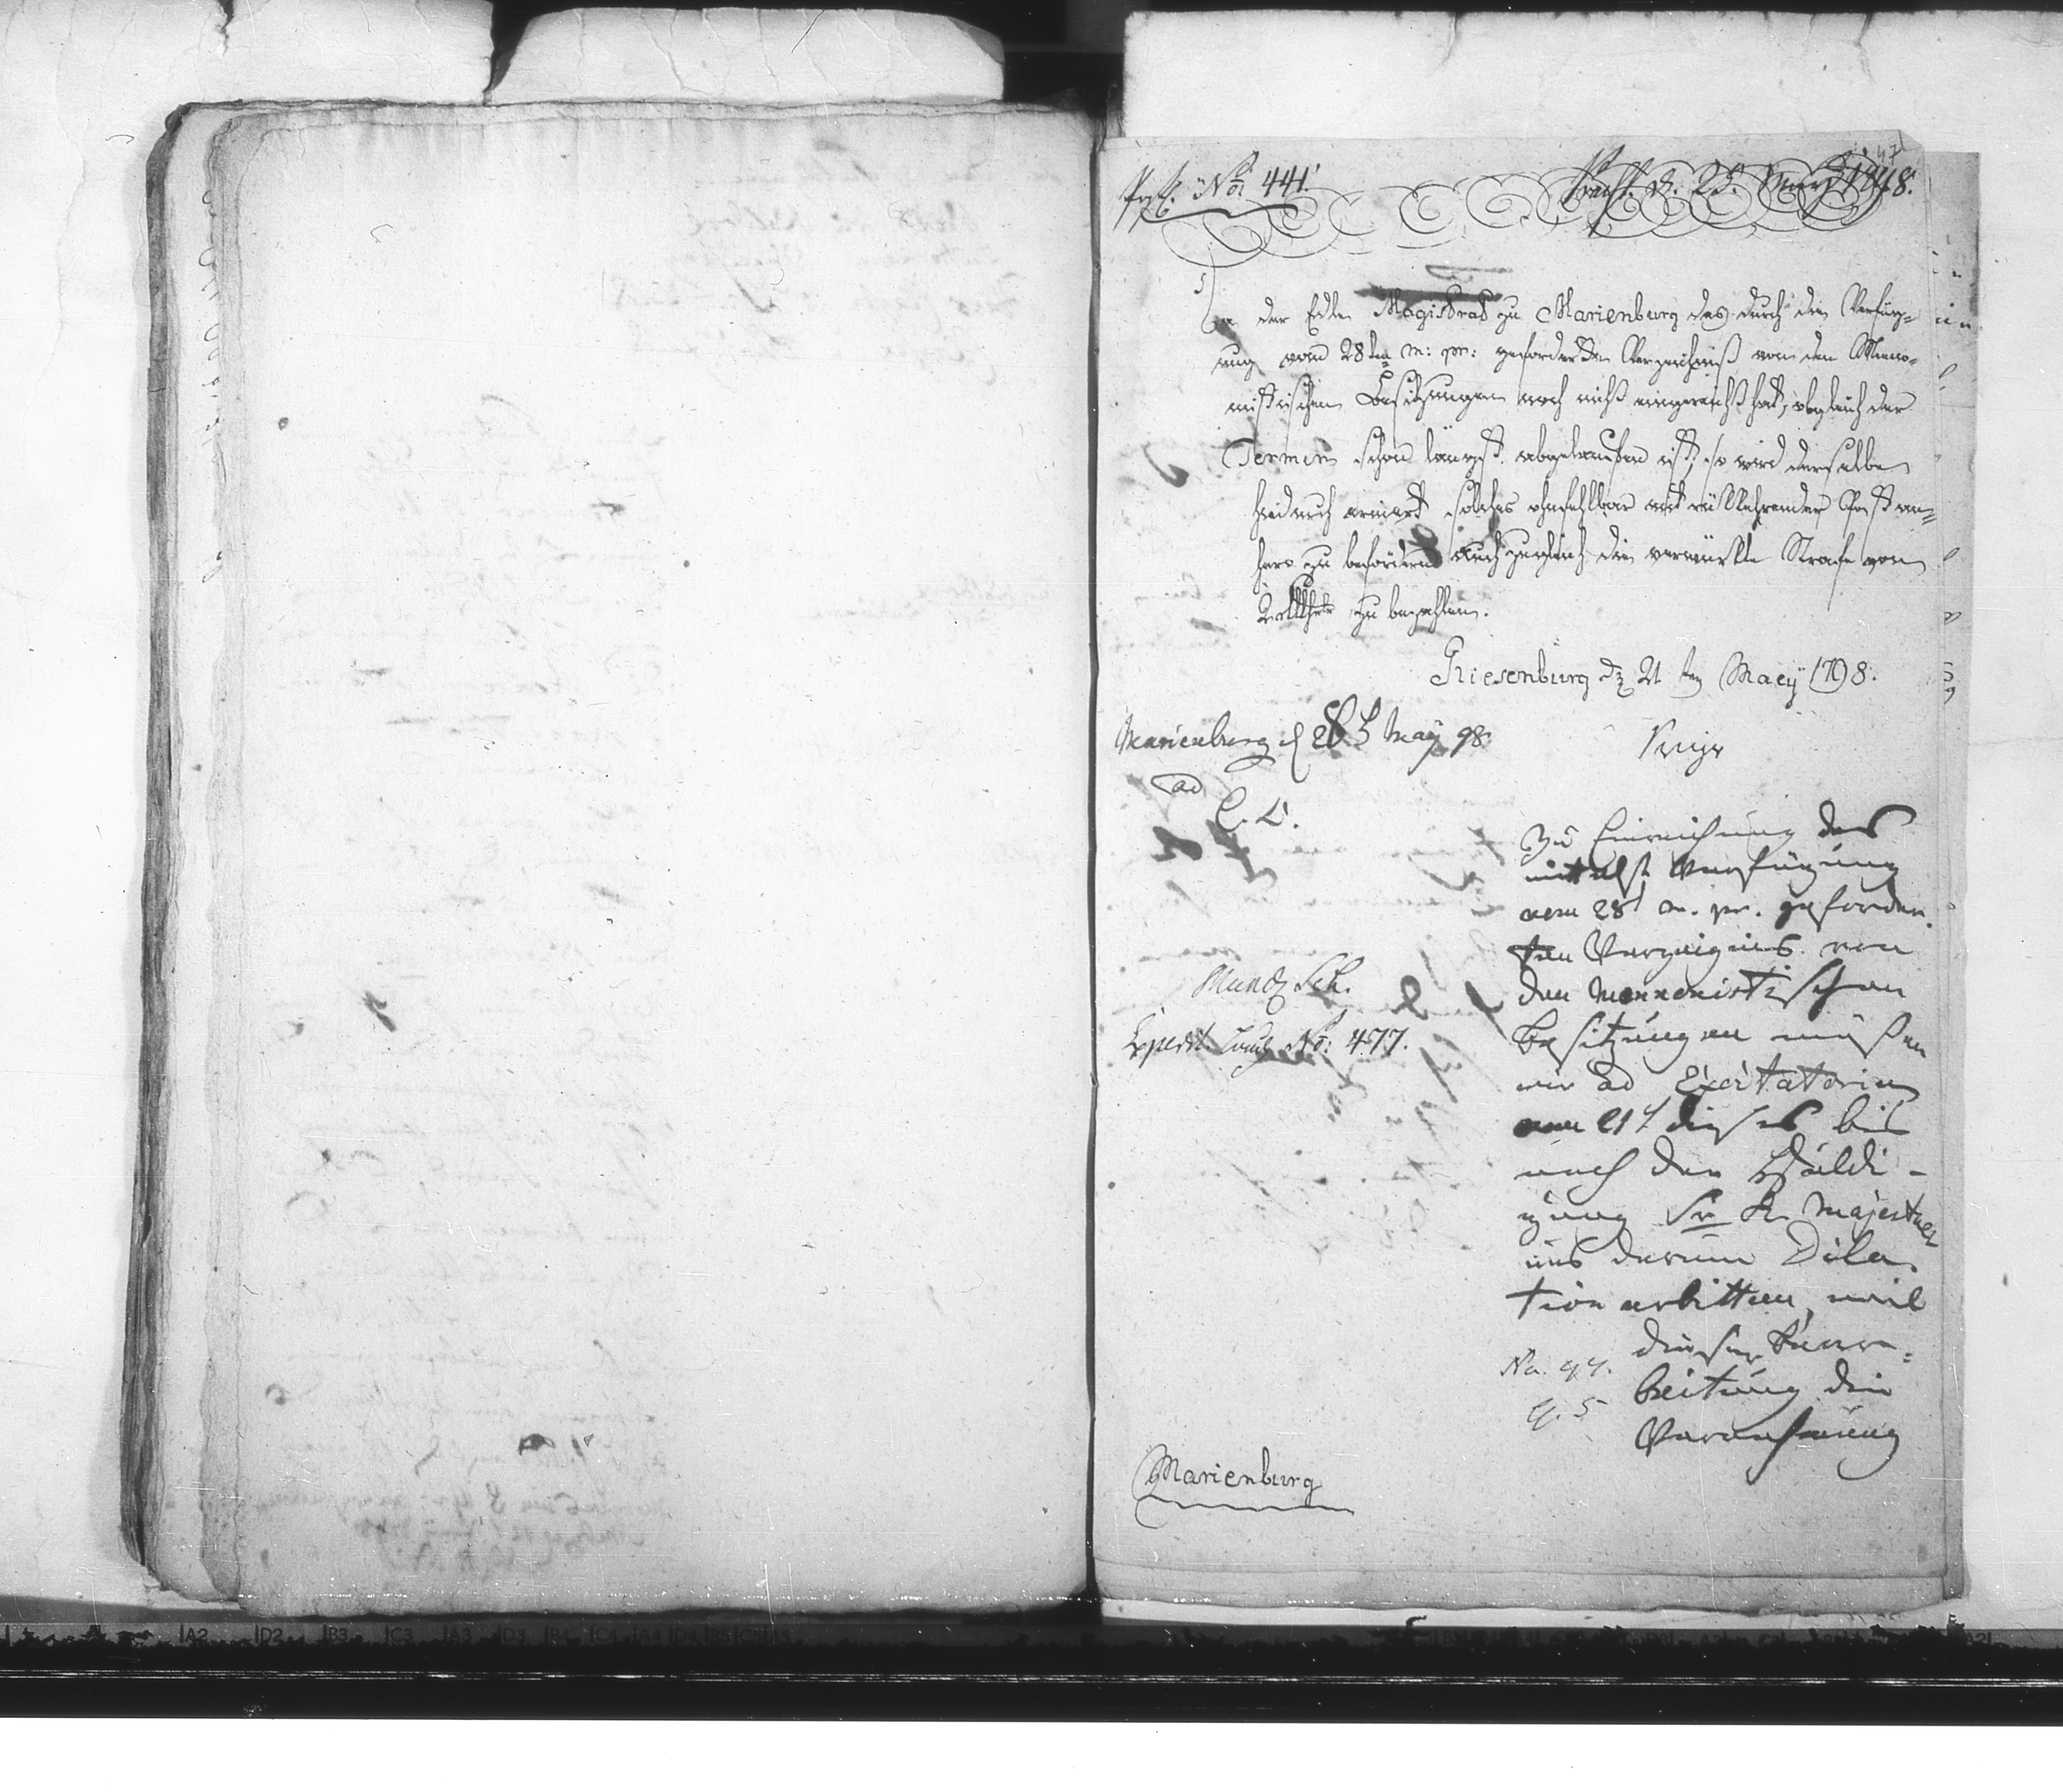 47
Prst. No: 441.
Praest. d. 25. May 1798.
Da der Edle Magistrat zu Marienburg das durch die Verfüg=
ung vom 28ten m: pr: geforderte Verzeichniß von den Meno=
nistischen Besitzungen noch nicht eingereicht hat, obgleich der
Termin schon längst abgelaufen ist, so wird derselbe
hiedurch solches ohnfehlbar mit rükkehrender Post an=
hero zu befördern auch zugleich die verwürkte Strafe von
zu bezahlen.
Riesenburg d 21ten Maey 1798.
Marienburg d 28t May 98.
ad
C. L.
Zu Einreichung des
mittelst Verfügung
vom 28t m. pr. geforder
ten Verzeignis von
den Mennonistischen
Besitzungen müßen
wir ad Excitatorium
vom 21t dieses bis
nach der Huldi-
gung Sr K. Majestaet
uns darum Dila
tion erbitten, weil
dieser Bear=
beitung die
Vernehmung
Mund. Sch.
Expedit. No: 477.
Marienburg